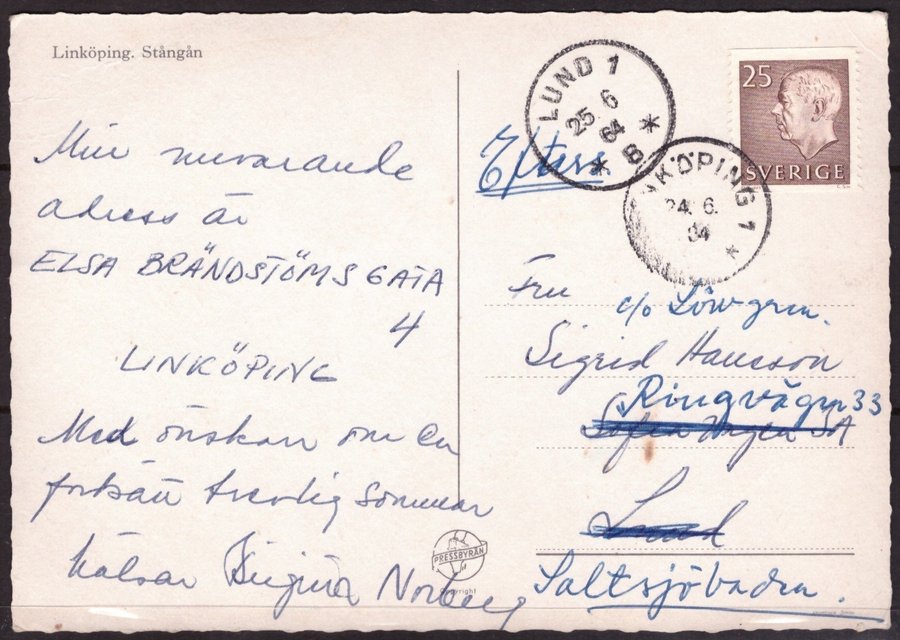 Linköping. Stångån
Min nuvarande
adress är
ELSA BRÄNDSTÖMS GATA
4
LINKÖPING
Med önskan om en
fortsatt trevlig sommar
hälsar Birgitta Norberg
PRESSBYRÅN
Copyright
LUND 1
25 6
64
* 8 *
NKÖPING 1 *
24. 6.
64
25
SVERIGE
Efters.
Fru
c/o Löwgren.
Sigrid Hansson
Ringvägen 33
Sofiavägen 5A
Lund
Saltsjöbaden.